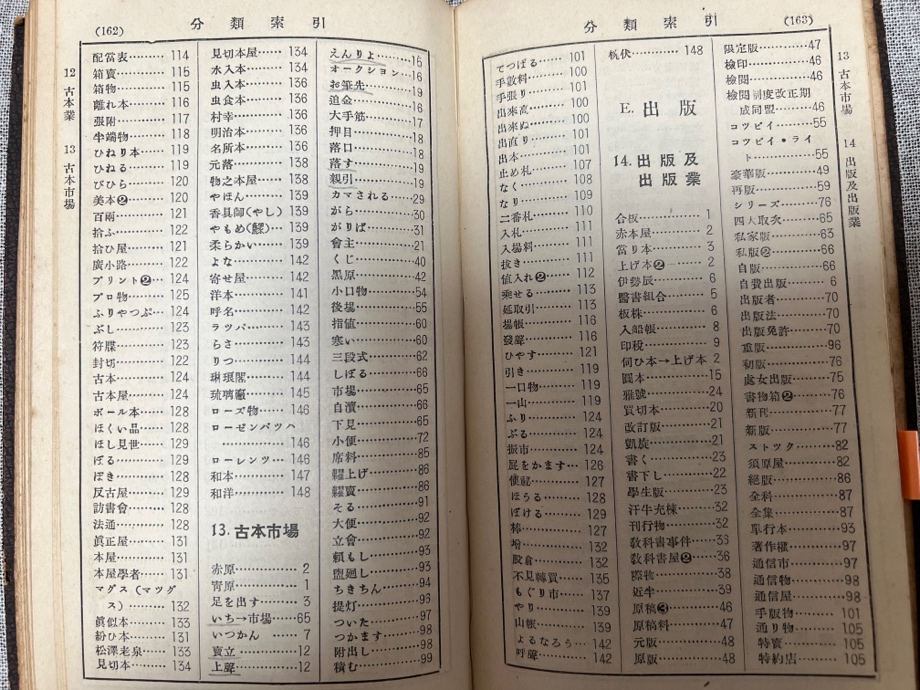 (162)
分類索引
12
古本業
13
古本市場
配當表……114
箱賣……115
箱物……115
離れ本……116
張附……117
半端物……118
ひねり本……119
ひねる……119
びひら……120
美本❷……120
百兩……121
拾ふ……122
拾ひ屋……121
廣小路……122
プリント❷……124
プロ物……125
ふりやつぷ…124
ぶし……123
符牒……123
封切……122
古本……124
古本屋……124
ボール本……128
ほくい品……128
ほし見世……129
ぼる……129
ぼき……128
反古屋……129
訪書會……128
法通……128
眞正屋……131
本屋……131
本屋學者……131
マグス（マツグ
ス）……132
眞似本……133
紛ひ本……131
松澤老泉……133
見切本……134
見切本屋……134
水入本……134
虫入本……136
虫食本……136
村幸……136
明治本……136
名所本……136
元落……138
物之本屋……138
やほん……139
香具師(やし)139
やもめ(鰥)…139
柔らかい……139
よな……142
寄せ屋……142
洋本……141
呼名……142
ラツパ……143
らさ……143
りつ……144
琳瑯閣……144
琉璃廠……145
ローズ物……146
ローゼンバツハ
……146
ローレンツ…146
和本……147
和洋……148
13. 古本市場
赤原……2
靑原……1
足を出す……3
いち→市場……65
いつかん……7
賣立……12
上聲……12
えんりよ……15
オークシヨン…16
お筆先……19
追金……16
大手筋……17
押目……18
落口……18
落す……19
親引……19
カマされる……29
がら……30
がりば……31
會主……21
くじ……40
黒原……42
小口物……54
後場……55
指値……60
寒い……60
三段式……62
しぼる……66
市場……65
自瀆……66
下見……65
小便……72
席料……85
糶上げ……86
糶賣……86
そる……91
大便……92
立會……92
頼もし……93
盥廻し……93
ちきちん……94
提灯……96
ついた……97
つかます……98
附出し……98
積む……99
分類索引
(163)
13
古本市場
14
出版及出版業
てつぽる……101
手數料……100
手張り……101
出來高……100
出來ぬ……100
出直り……101
出本……101
止め札……107
なく……108
なり……109
二番札……110
入札……111
入場料……111
抜き……111
値入れ❷……112
乘せる……113
延取引……113
場帳……116
發聲……116
ひやす……121
引き……119
一口物……119
一山……119
ふり……124
ぶる……124
振市……124
屁をかます…126
ほうる……128
ぼける……129
棒……127
脫倉……132
不見轉買……135
もぐり市……137
やり……139
山帳……139
よるなろう…142
呼聲……142
148
E. 出版
14. 出版及
出版業
合板……1
赤本屋……2
當り本……3
上げ本❷……2
伊勢辰……6
醫書組合……5
板株……6
入船帳……8
印稅……9
伺ひ本→上げ本 2
圓本……15
雅號……24
買切本……20
改訂版……21
凱旋……21
書く……23
書下し……22
學生版……23
汗牛充棟……32
刊行物……32
敎科書事件…36
敎科書屋❷…36
際物……38
近半……39
原稿❸……46
原稿料……47
元版……48
原版……48
限定版……47
檢印……46
檢閲……46
檢閲制度改正期
成同盟……46
コツピイ……55
コツピイ・ライ
ト……55
豪華版……49
再版……59
シリーズ……76
四大取次……65
私家版……63
私版❷……66
自版……66
自費出版……6
出版者……70
出版法……70
出版免許……70
重版……96
初版……76
處女出版……75
書物箱❷……76
新刊……77
新版……77
ストツク……82
須原屋……82
絕版……86
全科……87
全集……87
單行本……93
著作權……97
通信市……97
通信物……98
通信屋……98
手販物……101
通り物……105
特賣……105
特約店……105